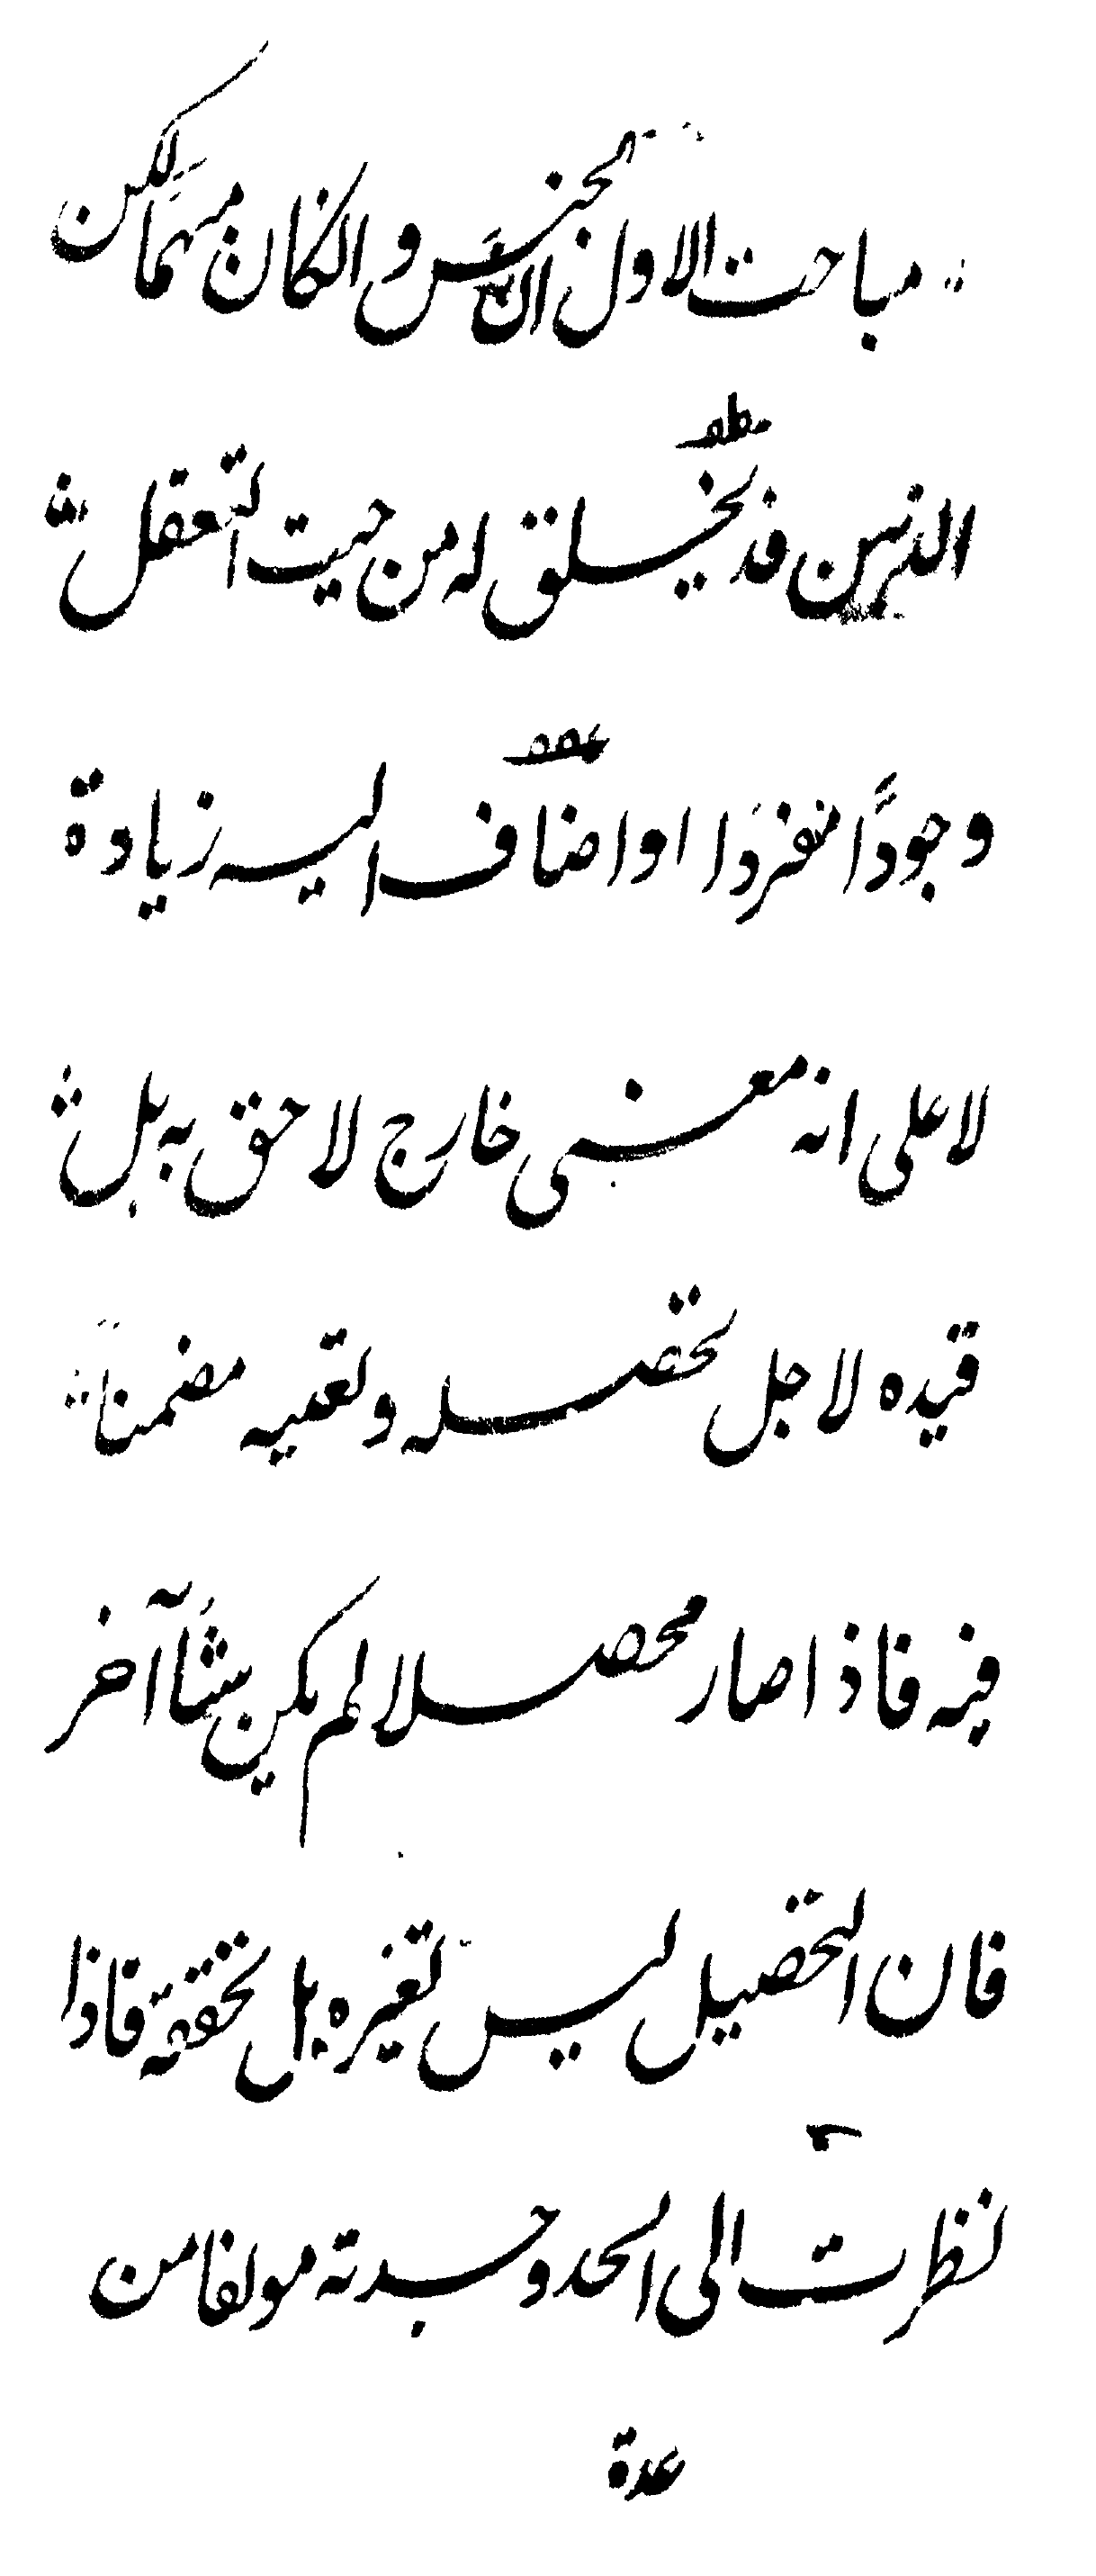 مباحث الاول ان الجنس و ان كان مبهما لكن
الذهن قد يخلق له من حيث التعقل
وجودًا منفردا او اضاف اليه زيادة
لا على انه معنى خارج لاحق به بل
قيده لاجل تحصله وتعينه مضمنا
فيه فاذا صار محصلا لم يكن شيأ آخر
فان التحصيل ليس تغيره بل تحققه فاذا
نظرت الى الحد وجدته مولفا من
عدة